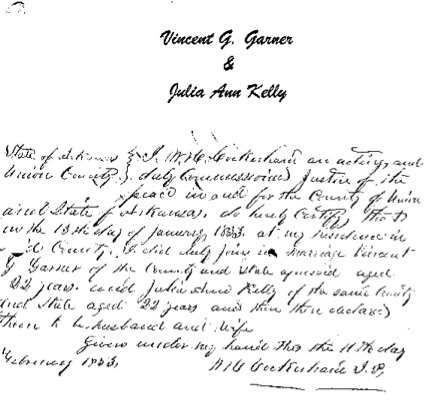 Vincent G. Garner
&
Julia Ann Kelly
State of Arkansas } I, W.H. Cockerham an acting and
Union County } duly Commissioned Justice of the
peace in and for the County of Union
and State of Arkansas, do hereby Certify, that
on the 13th day of January, 1883. at my residence in
County. I did duly join in marriage Vincent
G Garner of the County and State aforesaid aged
22 years. and Julia Ann Kelly of the same County
and State aged 22 years and then there declared
them to be husband and wife
Given under my hand this the 11th day
February 1883. W H Cockerham J.P.